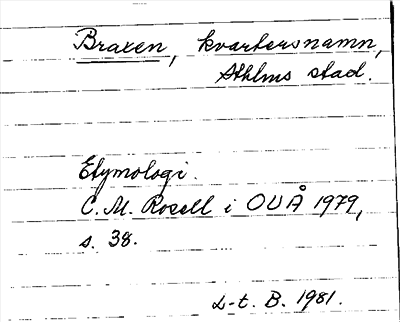 Braxen, kvartersnamn,
Sthlms stad.
Etymologi.
C. M. Rosell i OUÅ 1979,
s. 38.
L-t. B. 1981.